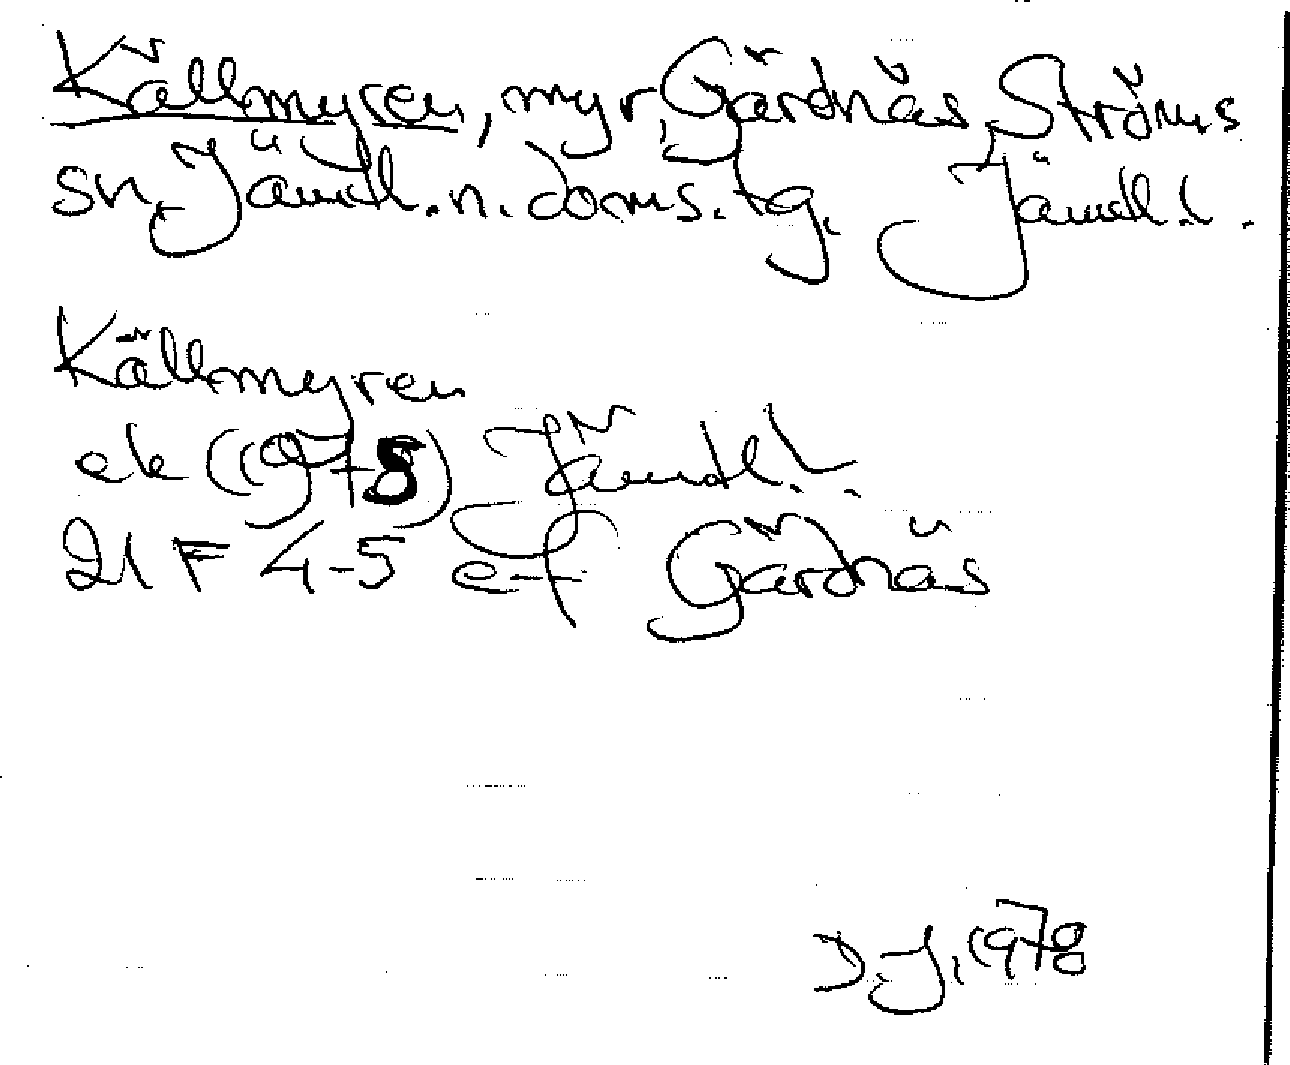 Källmyren, myr, Gärdnäs, Ströms
sn, Jämtl. n. doms. tg. Jämtl. l.
Källmyren
ek (1978) Jämtl. l.
21 F 4-5 e-f Gärdnäs
D.J. 1978